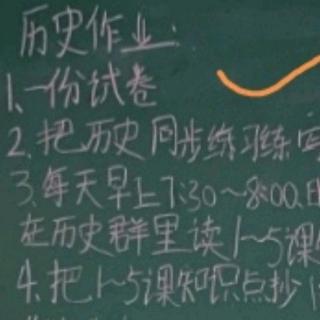 历史作业:
1、一份试卷
2、把历史同步练习练写
3、每天早上7:30~8:00、
在历史群里读1~5课
4、把1~5课知识点抄